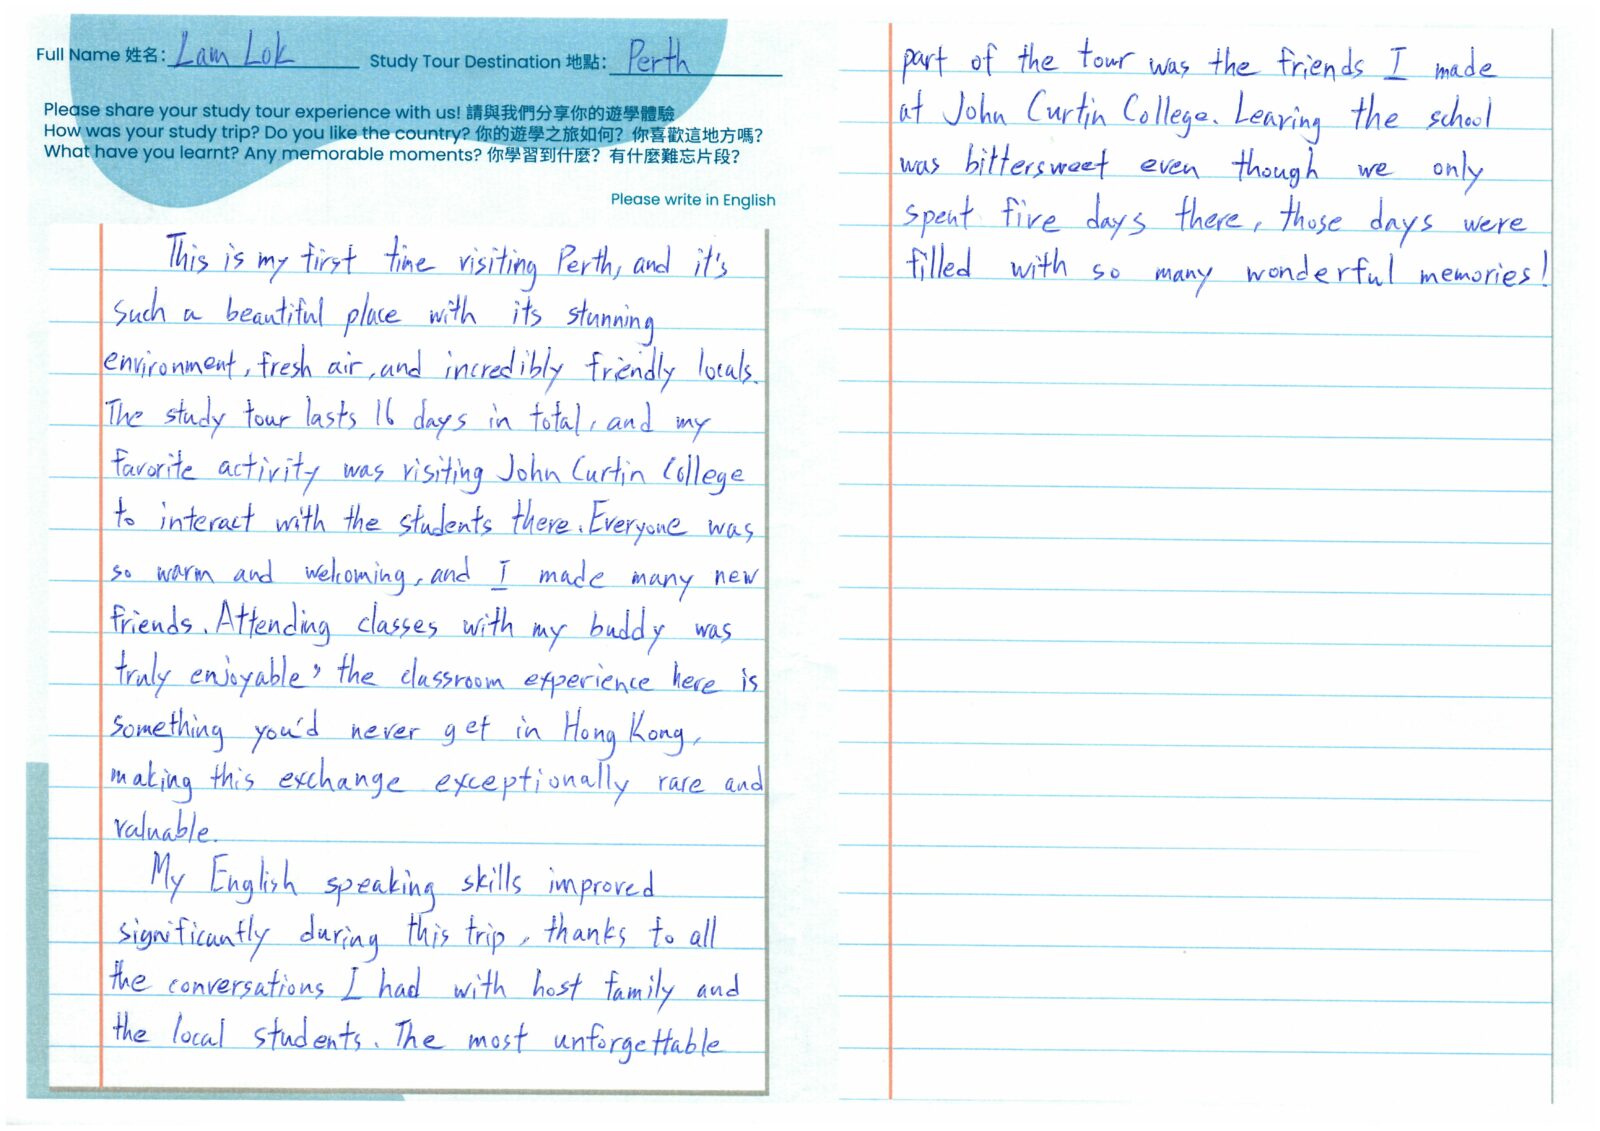 Full Name 姓名: Lam Lok Study Tour Destination 地點: Perth
Please share your study tour experience with us! 請與我們分享你的遊學體驗
How was your study trip? Do you like the country? 你的遊學之旅如何? 你喜歡這地方嗎?
What have you learnt? Any memorable moments? 你學習到什麼? 有什麼難忘片段?
Please write in English
This is my first time visiting Perth, and it's
such a beautiful place with its stunning
environment, fresh air, and incredibly friendly locals.
The study tour lasts 16 days in total, and my
favorite activity was visiting John Curtin College
to interact with the students there. Everyone was
so warm and welcoming, and I made many new
friends. Attending classes with my buddy was
truly enjoyable, the classroom experience here is
something you'd never get in Hong Kong,
making this exchange exceptionally rare and
valuable.
My English speaking skills improved
significantly during this trip, thanks to all
the conversations I had with host family and
the local students. The most unforgettable
part of the tour was the friends I made
at John Curtin College. Leaving the school
was bittersweet even though we only
spent five days there, those days were
filled with so many wonderful memories!